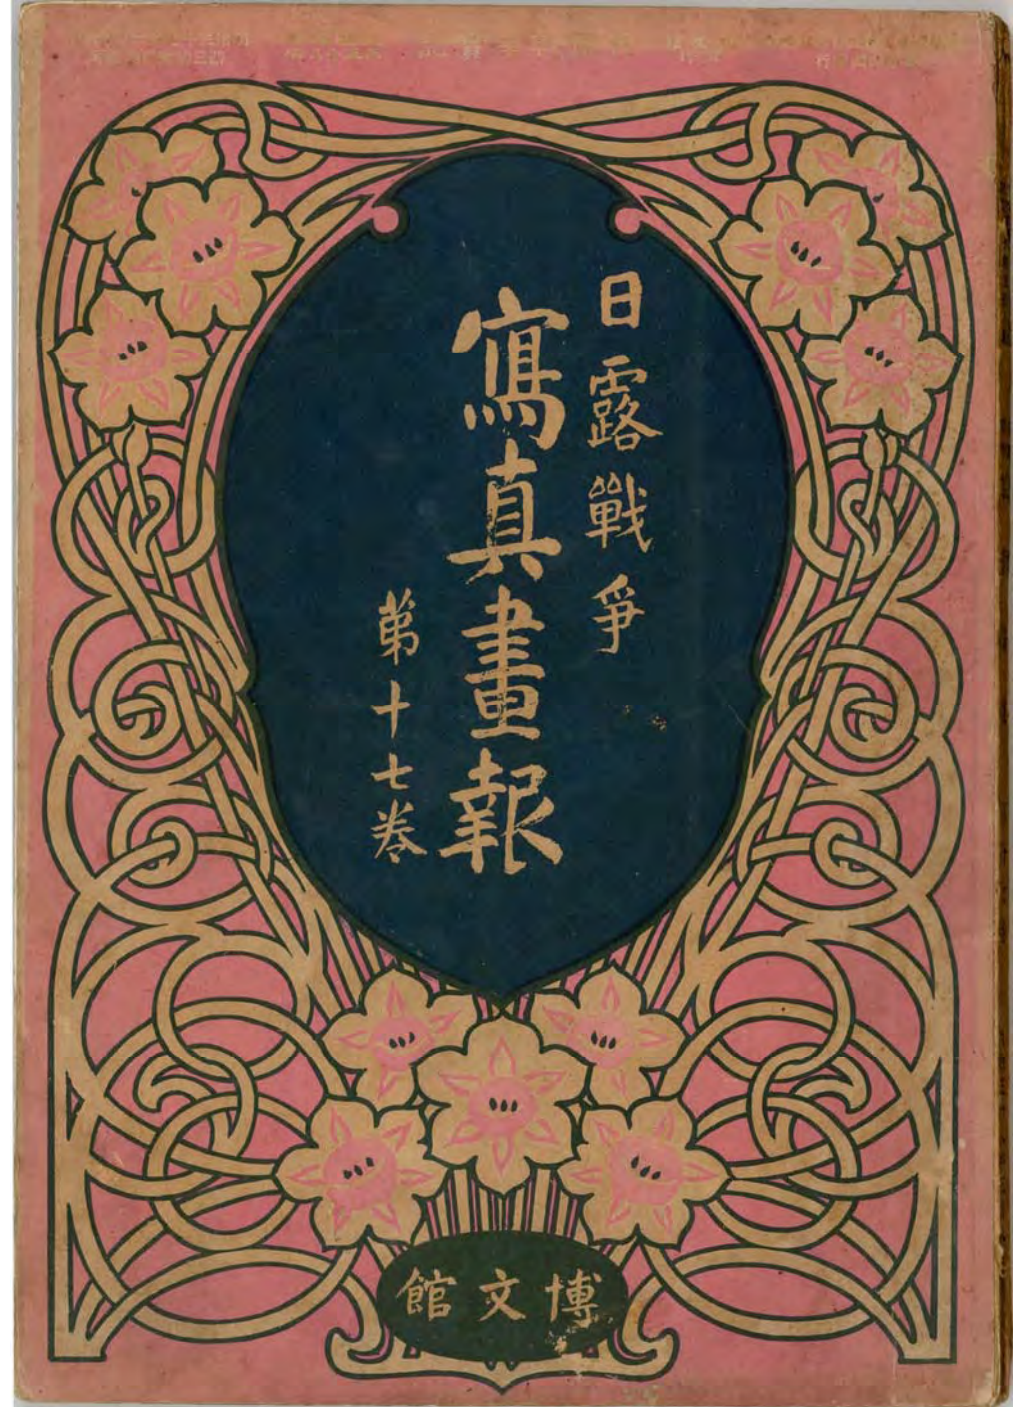 日露戰爭
寫真畫報
第十七卷
博文館